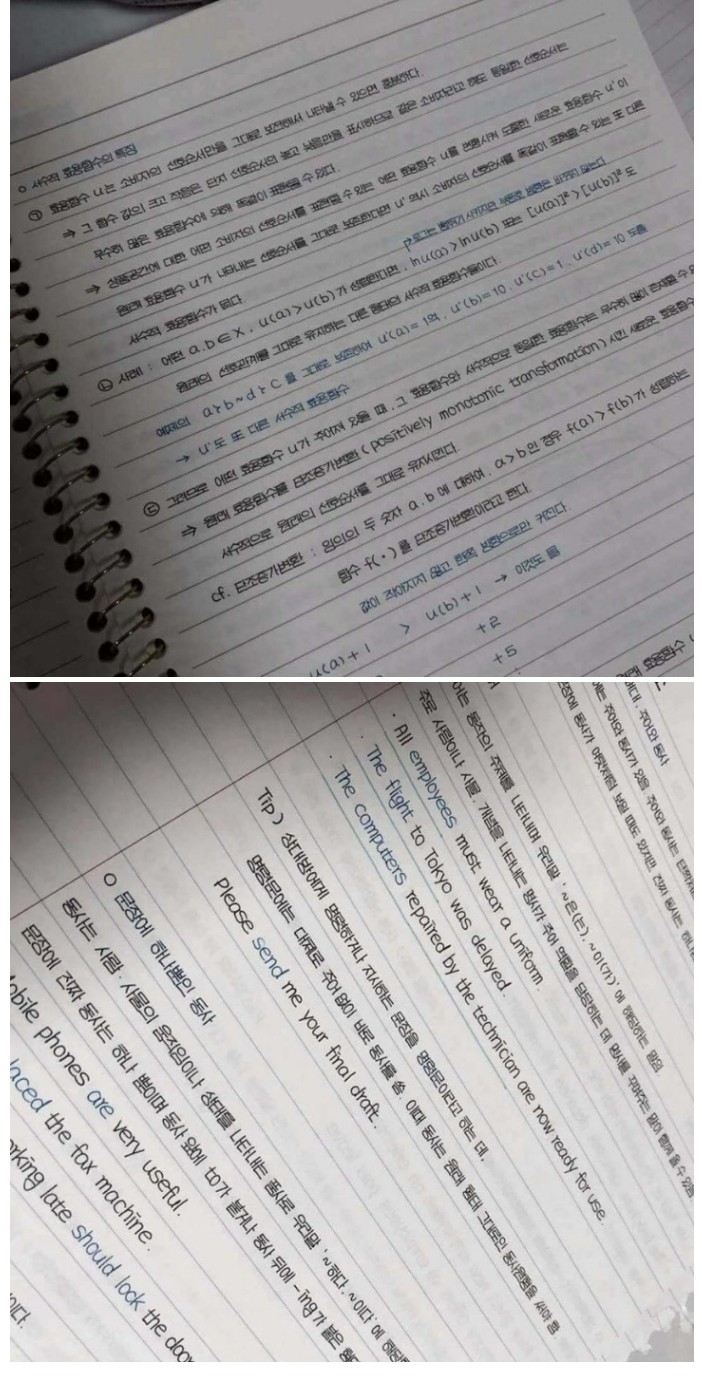 ○ 서수적 효용함수의 특징
㉠ 효용함수 u는 소비자의 선호순서만을 그대로 보전해서 나타낼 수 있으면 충분하다.
⇒ 그 함수 값의 크고 작음은 단지 선호순서의 높고 낮음만을 표시하므로 같은 소비자라고 해도 동일한 선호순서는
무수히 많은 효용함수에 의해 똑같이 표현될 수 있다.
⇒ 상품공간에 대한 어떤 소비자의 선호순서를 표현할 수 있는 어떤 효용함수 u를 변형시켜 도출한 새로운 효용함수 u'이
원래 효용함수 u가 나타내는 선호순서를 그대로 보존한다면 u' 역시 소비자의 선호순서를 똑같이 표현할 수 있는 또 다른
서수적 효용함수가 된다.
㉡ 사례 : 어떤 a.b∈X, u(a)>u(b)가 성립한다면, lnu(a)>lnu(b) 또는 [u(a)]²>[u(b)]²도
원래의 선호관계를 그대로 유지하는 다른 형태의 서수적 효용함수들이다.
예제의 a≻b~d≻c를 그대로 보전하여 u'(a)=19, u'(b)=10, u'(c)=1, u'(d)=10
→ u'도 또 다른 서수적 효용함수
㉢ 그러므로 어떤 효용함수 u가 주어져 있을 때, 그 효용함수와 서수적으로 동일한 효용함수는 무수히 많이 존재할 수
⇒ 원래 효용함수를 단조증가변환(positively monotonic transformation) 시킨 새로운 효용함수
서수적으로 원래의 선호순서를 그대로 유지시킨다.
cf. 단조증가변환 : 임의의 두 숫자 a.b에 대하여, a>b인 경우 f(a)>f(b)가 성립하는
함수 f(•)를 단조증가변환이라고 한다.
값이 작아지지 않고 한쪽 방향으로만 커진다.
u(a)+1 > u(b)+1 → 이것도 됨
+2
+5
원래 효용함수
주어와 동사
주어와 동사가 있음. 주어와 동사는
문장에 동사가 여럿처럼 보일 때도 있지만 진짜 동사는 하나
동작의 주체를 나타내며 우리말 '~은(는), ~이(가)'에 해당하는 말임
주로 사람이나 사물, 개념을 나타내는 명사가 주어 역할을 담당하는 데 명사를 꾸며주는 말이 함께 올 수 있음
· All employees must wear a uniform.
· The flight to Tokyo was deloyed.
· The computers repaired by the technician are now ready for use.
Tip ) 상대방에게 명령하거나 지시하는 문장을 명령문이라고 하는 데,
명령문에는 대체로 주어 없이 바로 동사를 씀. 이때 동사는 원래 형태 그대로의 동사원형을 써야 함
Please send me your final draft.
○ 문장에 하나뿐인 동사
동사는 사람, 사물의 움직임이나 상태를 나타내는 품사로 우리말 '~하다, ~이다'에 해당
문장에 진짜 동사는 하나 뿐이며 동사 앞에 to가 붙거나 동사 뒤에 -ing가 붙은
obile phones are very useful.
laced the fax machine.
rking late should lock the door
이다.